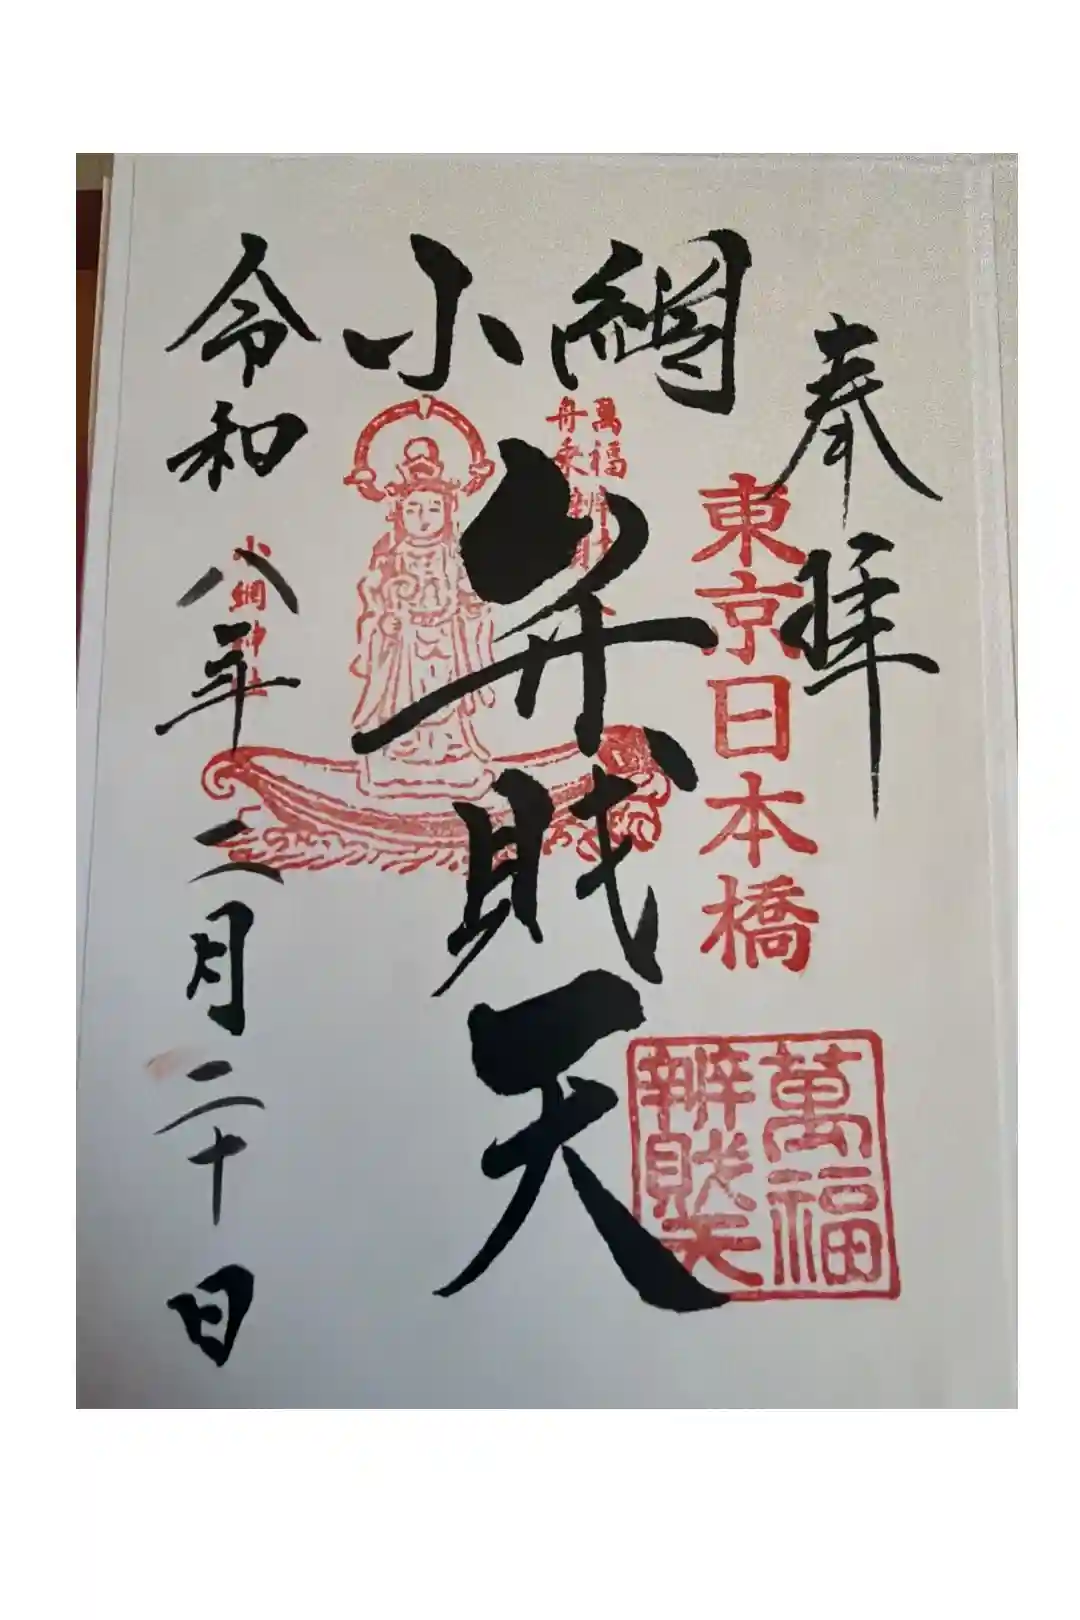 奉拝
東京日本橋
小網
弁財天
萬福
舟乗辨財
萬福
辨財天
小網神社
令和八年二月二十日